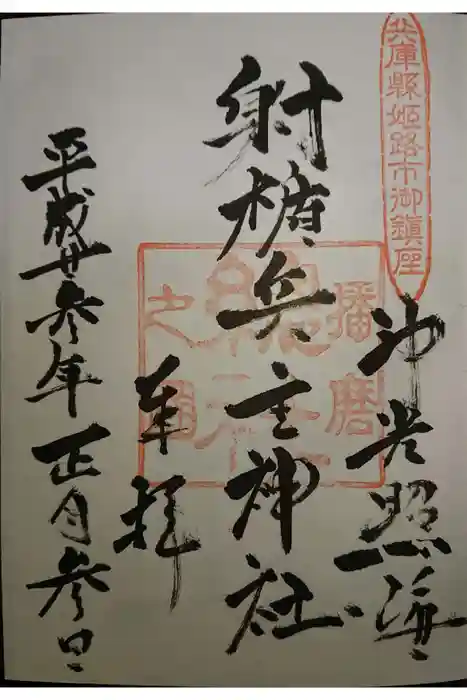 兵庫縣姫路市御鎮座
神光照海
射楯兵主神社
播磨
總社
之
奉拝
平成廿参年正月参日